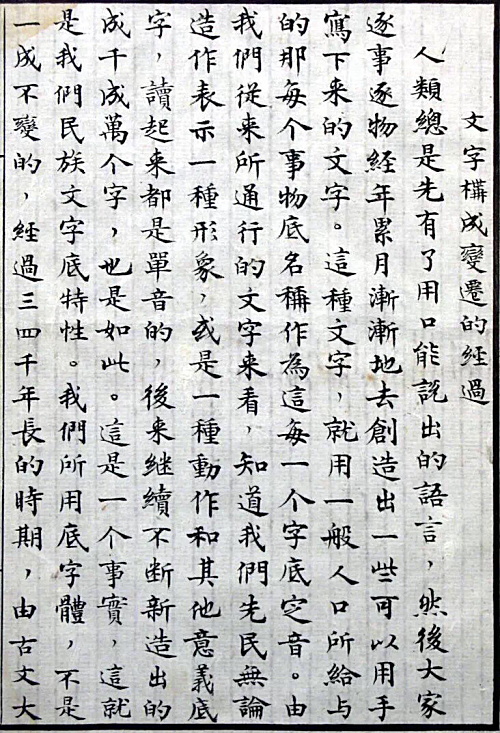 文字構成變遷的經過
人類總是先有了用口能説出的語言，然後大家
逐事逐物經年累月漸漸地去創造出一些可以用手
寫下来的文字。這種文字，就用一般人口所給与
的那每个事物底名稱作為這每一个字底定音。由
我們從来所通行的文字来看，知道我們先民無論
造作表示一種形象，或是一種動作和其他意義底
字，讀起来都是單音的，後来継續不断新造出的
成千成萬个字，也是如此。這是一个事實，這就
是我們民族文字底特性。我們所用底字體，不是
一成不變的，經過三四千年長的時期，由古文大